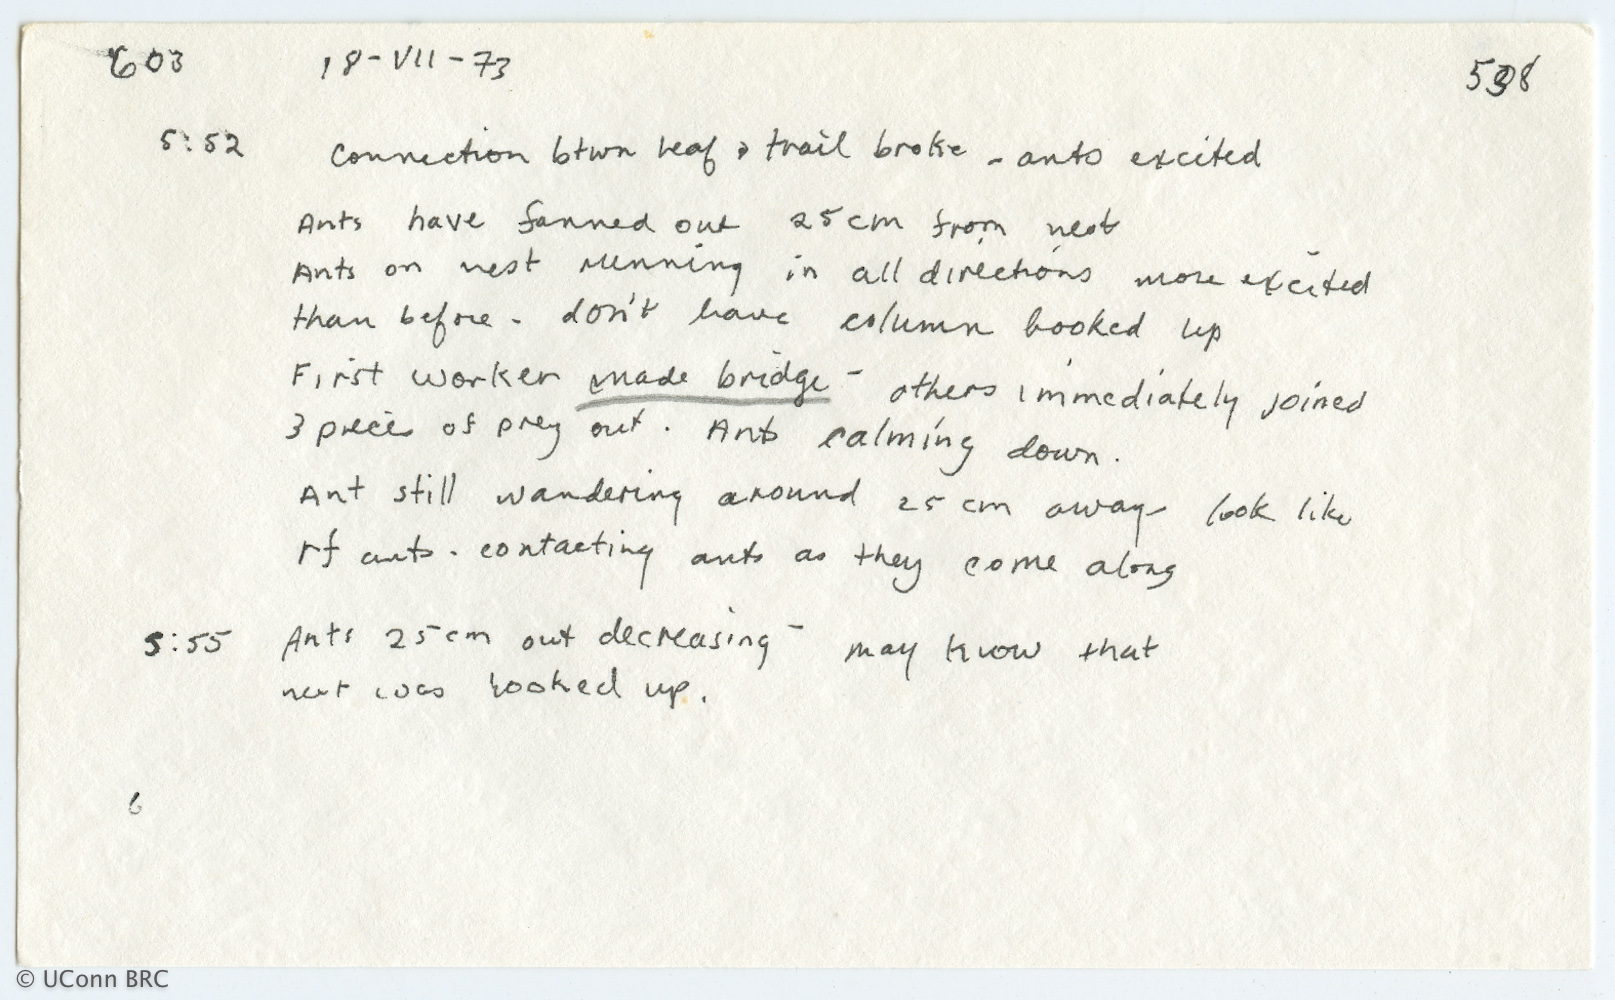 603 18-VII-73 538
5:52 Connection btwn leaf & trail broke - ants excited
Ants have fanned out 25cm from nest
Ants on nest running in all directions more excited
than before - don't have column hooked up
First worker made bridge - others immediately joined
3 pieces of prey out. Ants calming down.
Ant still wandering around 25 cm away look like
rf ants. contacting ants as they come along
5:55 Ants 25cm out decreasing - may know that
nest was hooked up.
6
© UConn BRC